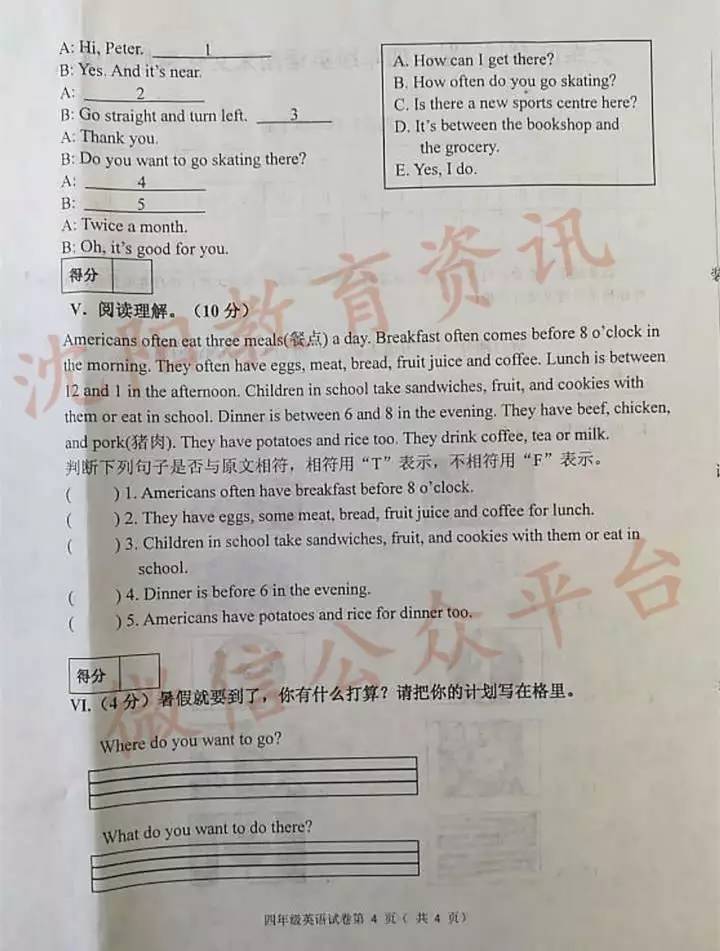 A: Hi, Peter. 1
B: Yes. And it's near.
A: 2
B: Go straight and turn left. 3
A: Thank you.
B: Do you want to go skating there?
A: 4
B: 5
A: Twice a month.
B: Oh, it's good for you.
A. How can I get there?
B. How often do you go skating?
C. Is there a new sports centre here?
D. It's between the bookshop and
the grocery.
E. Yes, I do.
得分
V. 阅读理解。(10 分)
Americans often eat three meals(餐点) a day. Breakfast often comes before 8 o'clock in
the morning. They often have eggs, meat, bread, fruit juice and coffee. Lunch is between
12 and 1 in the afternoon. Children in school take sandwiches, fruit, and cookies with
them or eat in school. Dinner is between 6 and 8 in the evening. They have beef, chicken,
and pork(猪肉). They have potatoes and rice too. They drink coffee, tea or milk.
判断下列句子是否与原文相符，相符用“T”表示，不相符用“F”表示。
( ) 1. Americans often have breakfast before 8 o'clock.
( ) 2. They have eggs, some meat, bread, fruit juice and coffee for lunch.
( ) 3. Children in school take sandwiches, fruit, and cookies with them or eat in
school.
( ) 4. Dinner is before 6 in the evening.
( ) 5. Americans have potatoes and rice for dinner too.
得分
VI.（4 分）暑假就要到了，你有什么打算？请把你的计划写在格里。
Where do you want to go?
What do you want to do there?
四年级英语试卷第 4 页（ 共 4 页）
沈阳教育资讯
微信公众平台